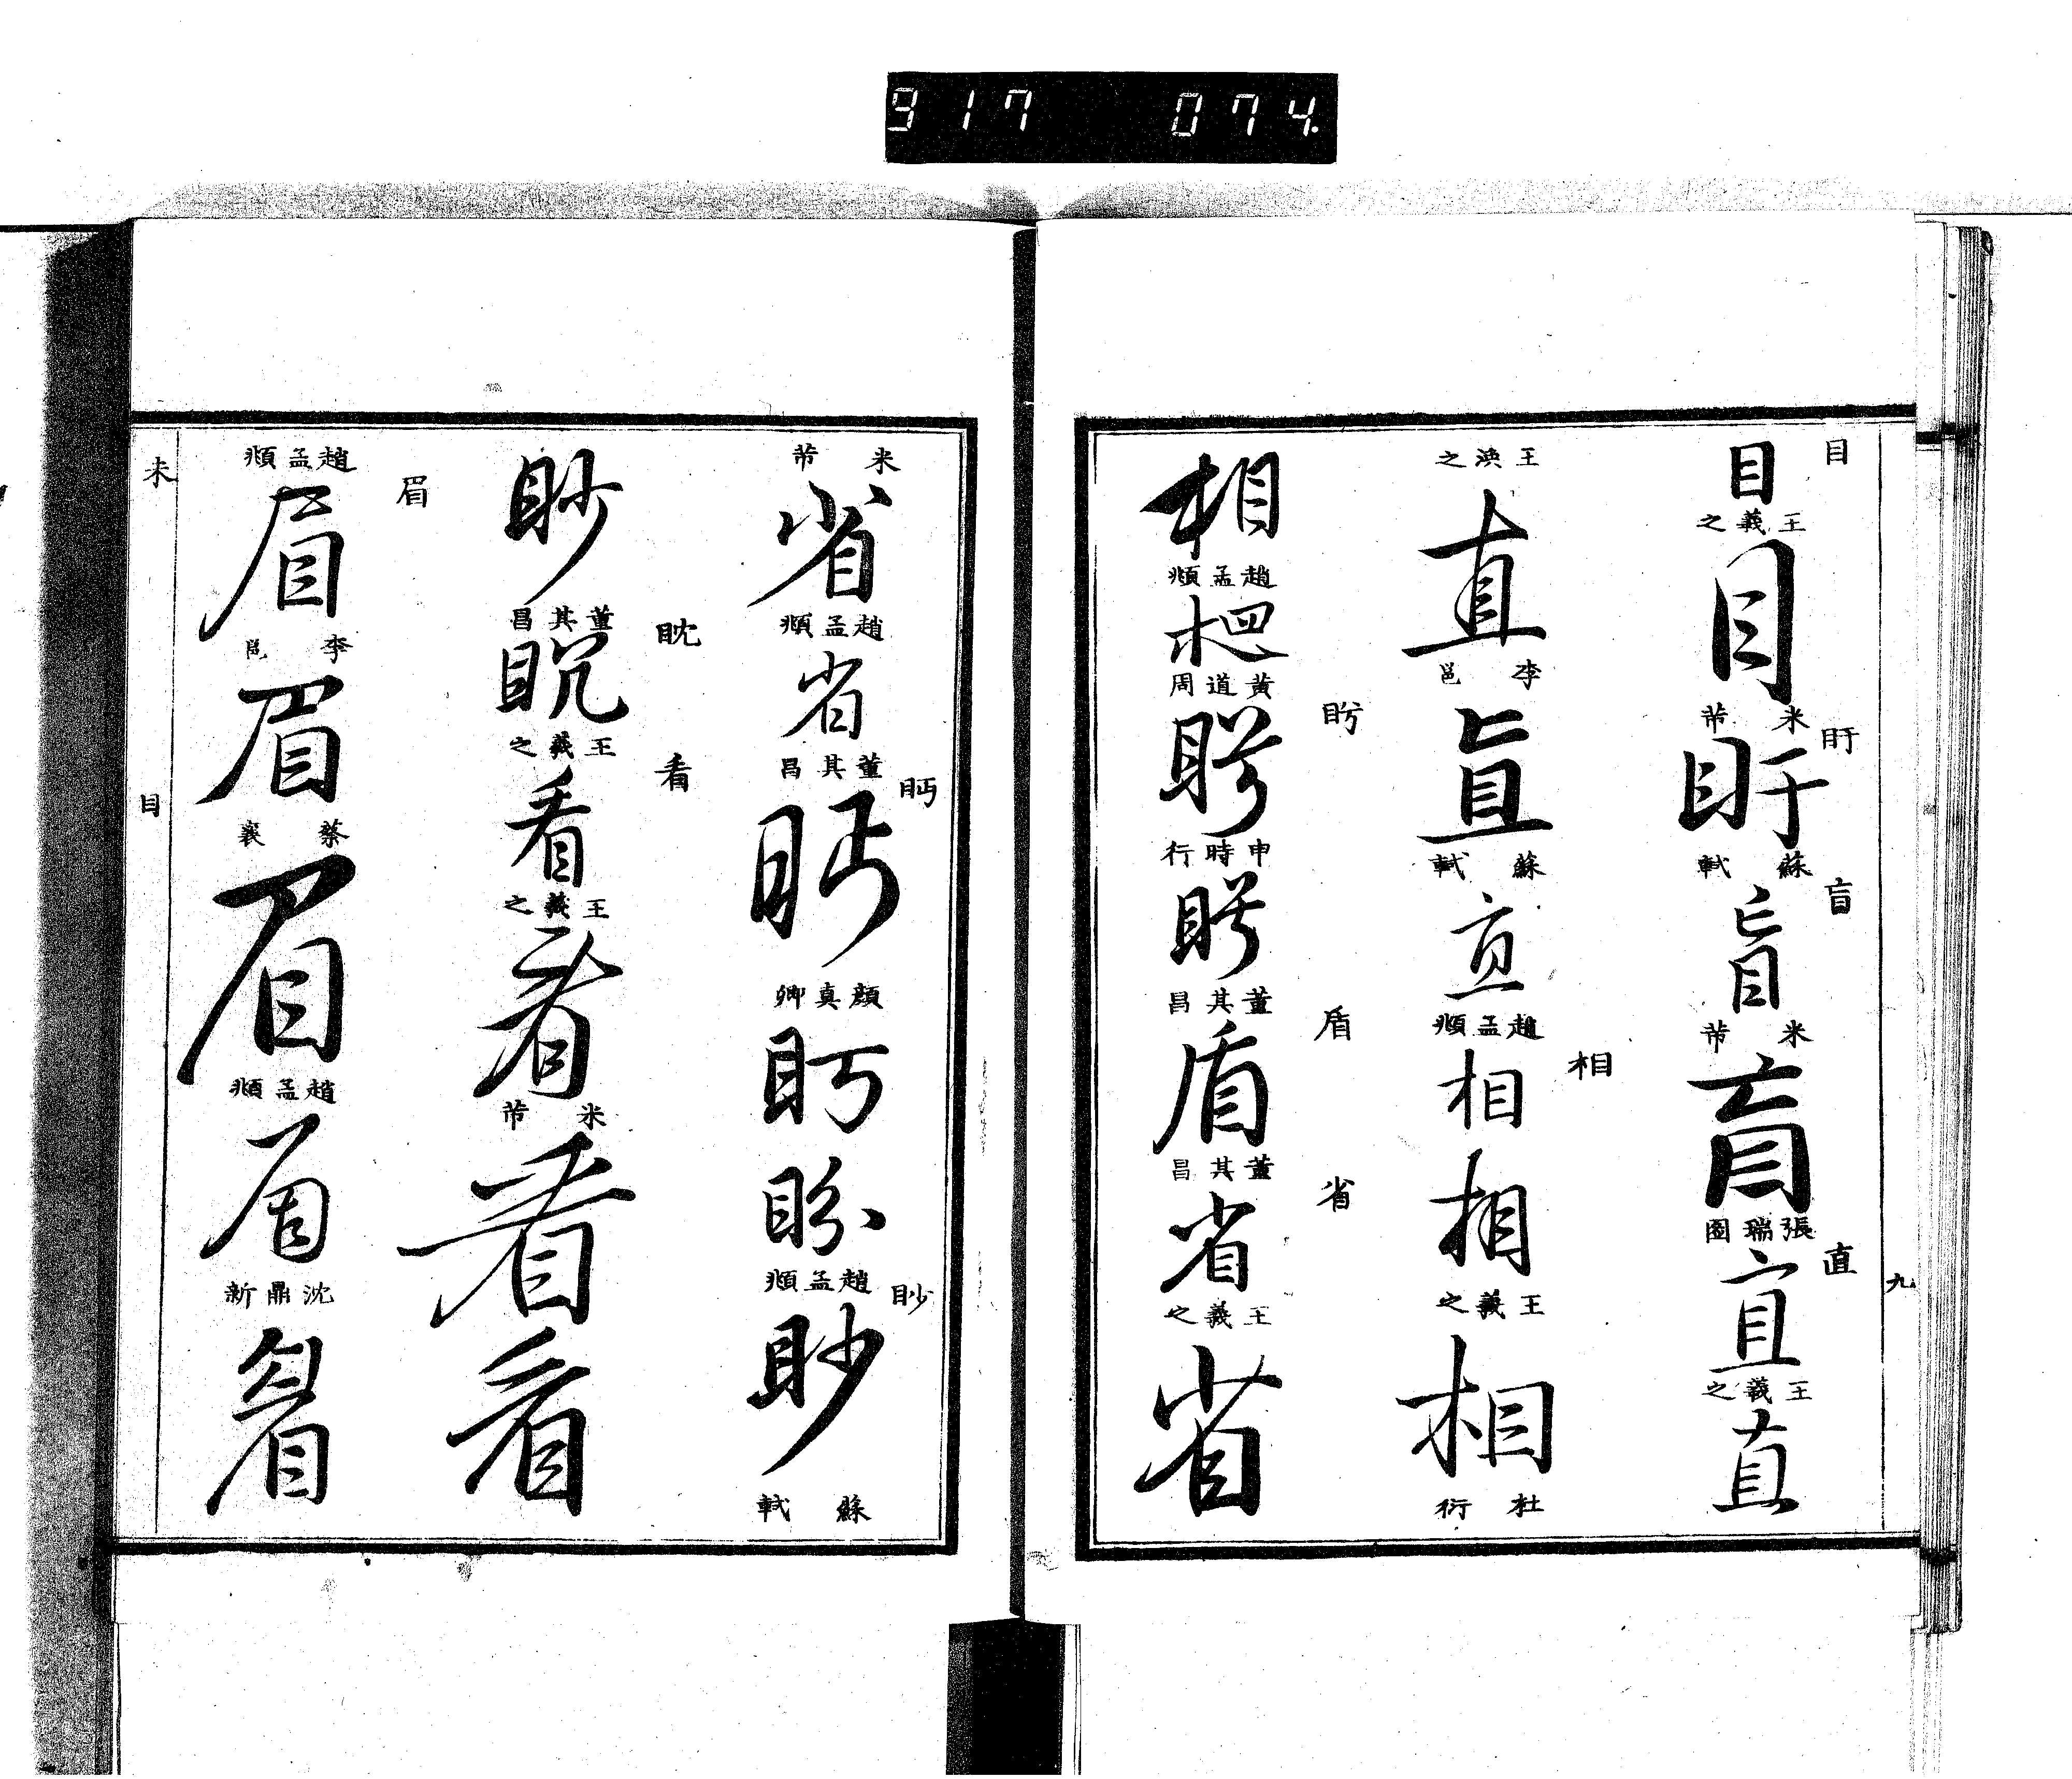 917 074.
目
目
王羲之
目
米芾
盱
盱
蘇軾
盲
盲
米芾
盲
張瑞圖
直
直
王羲之
直
九
王渙之
直
李邕
直
蘇軾
直
趙孟頫
相
相
相
王羲之
相
杜衍
相
趙孟頫
相
黄道周
盻
盻
申時行
盻
董其昌
盾
盾
董其昌
省
省
王羲之
省
米芾
省
趙孟頫
省
董其昌
眄
眄
顏真卿
眄
盼
趙孟頫
眇
眇
蘇軾
眇
董其昌
眈
眈
王羲之
看
看
王羲之
看
米芾
看
看
眉
趙孟頫
眉
李邕
眉
蔡襄
眉
趙孟頫
眉
沈鼎新
目